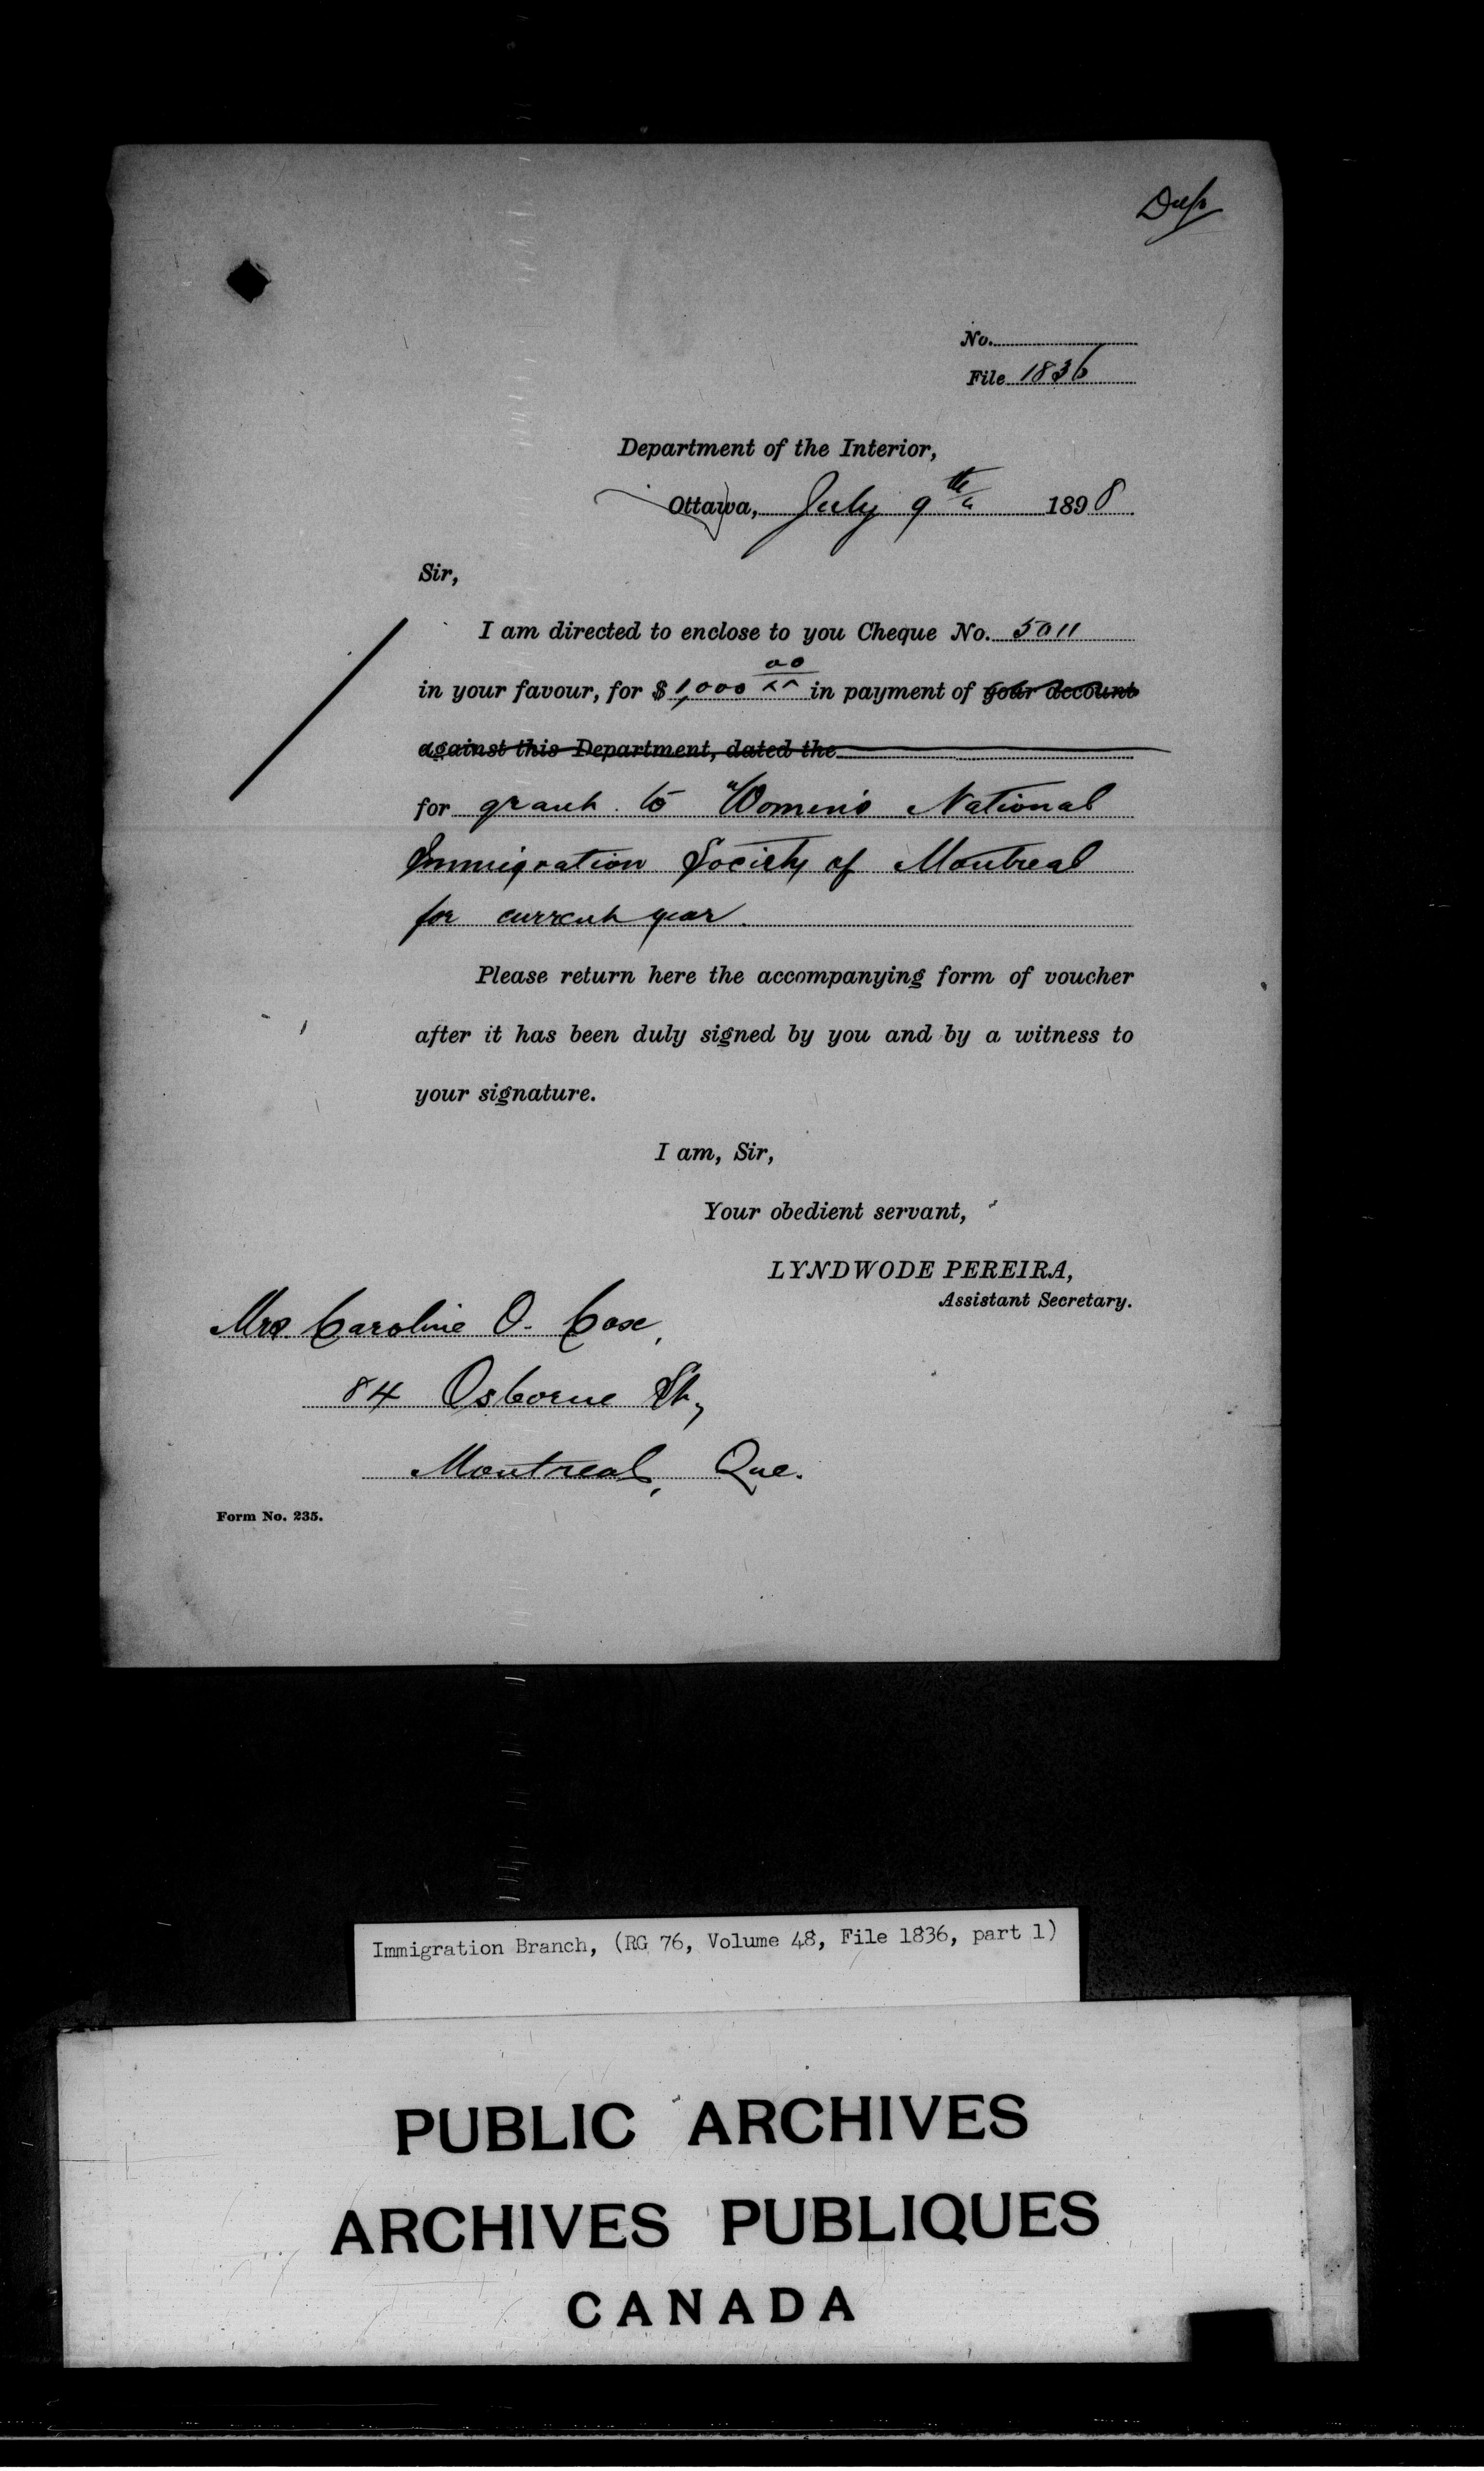 Dup
No.
File 1836
Department of the Interior,
Ottawa, July 9th 1898
Sir,
I am directed to enclose to you Cheque No. 5011
in your favour, for $1,000 00/xx in payment of your account
against this Department, dated the
for grant to Women's National
Immigration Society of Montreal
for current year.
Please return here the accompanying form of voucher
after it has been duly signed by you and by a witness to
your signature.
I am, Sir,
Your obedient servant,
LYNDWODE PEREIRA,
Assistant Secretary.
Mrs. Caroline O. Cox,
84 Osborne St,
Montreal, Que.
Form No. 235.
Immigration Branch, (RG 76, Volume 48, File 1836, part 1)
PUBLIC ARCHIVES
ARCHIVES PUBLIQUES
CANADA